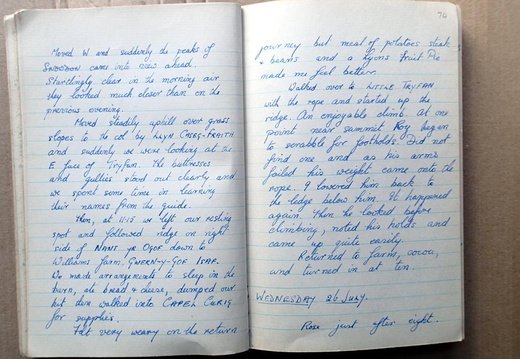 Moved W and suddenly the peaks of
SNOWDON came into view ahead.
Startlingly clear in the morning air
they looked much closer than on the
previous evening.
Moved steadily uphill over grass
slopes to the col by LLYN CASEG-FRAITH
and suddenly we were looking at the
E face of Tryfan. The buttresses
and gullies stood out clearly and
we spent some time in learning
their names from the guide.
Then, at 11.15 we left our resting
spot and followed ridge on right
side of NANT YR OGOF down to
Williams farm, GWERN-Y-GOF ISAF.
We made arrangements to sleep in the
barn, ate bread & cheese, dumped our
kit then walked into CAPEL CURIG
for supplies.
Felt very weary on the return
76
journey but meal of potatoes steak
& beans and a Lyons Fruit Pie
made me feel better.
Walked over to LITTLE TRYFAN
with the rope and started up the
ridge. An enjoyable climb. At one
point near summit Roy began
to scrabble for footholds. Did not
find one and as his arms
failed his weight came onto the
rope. I lowered him back to
the ledge below him. It happened
again. Then he looked before
climbing, noted his holds and
came up quite easily.
Returned to farm, cocoa,
and turned in at ten.
WEDNESDAY 26 JULY.
Rose just after eight.